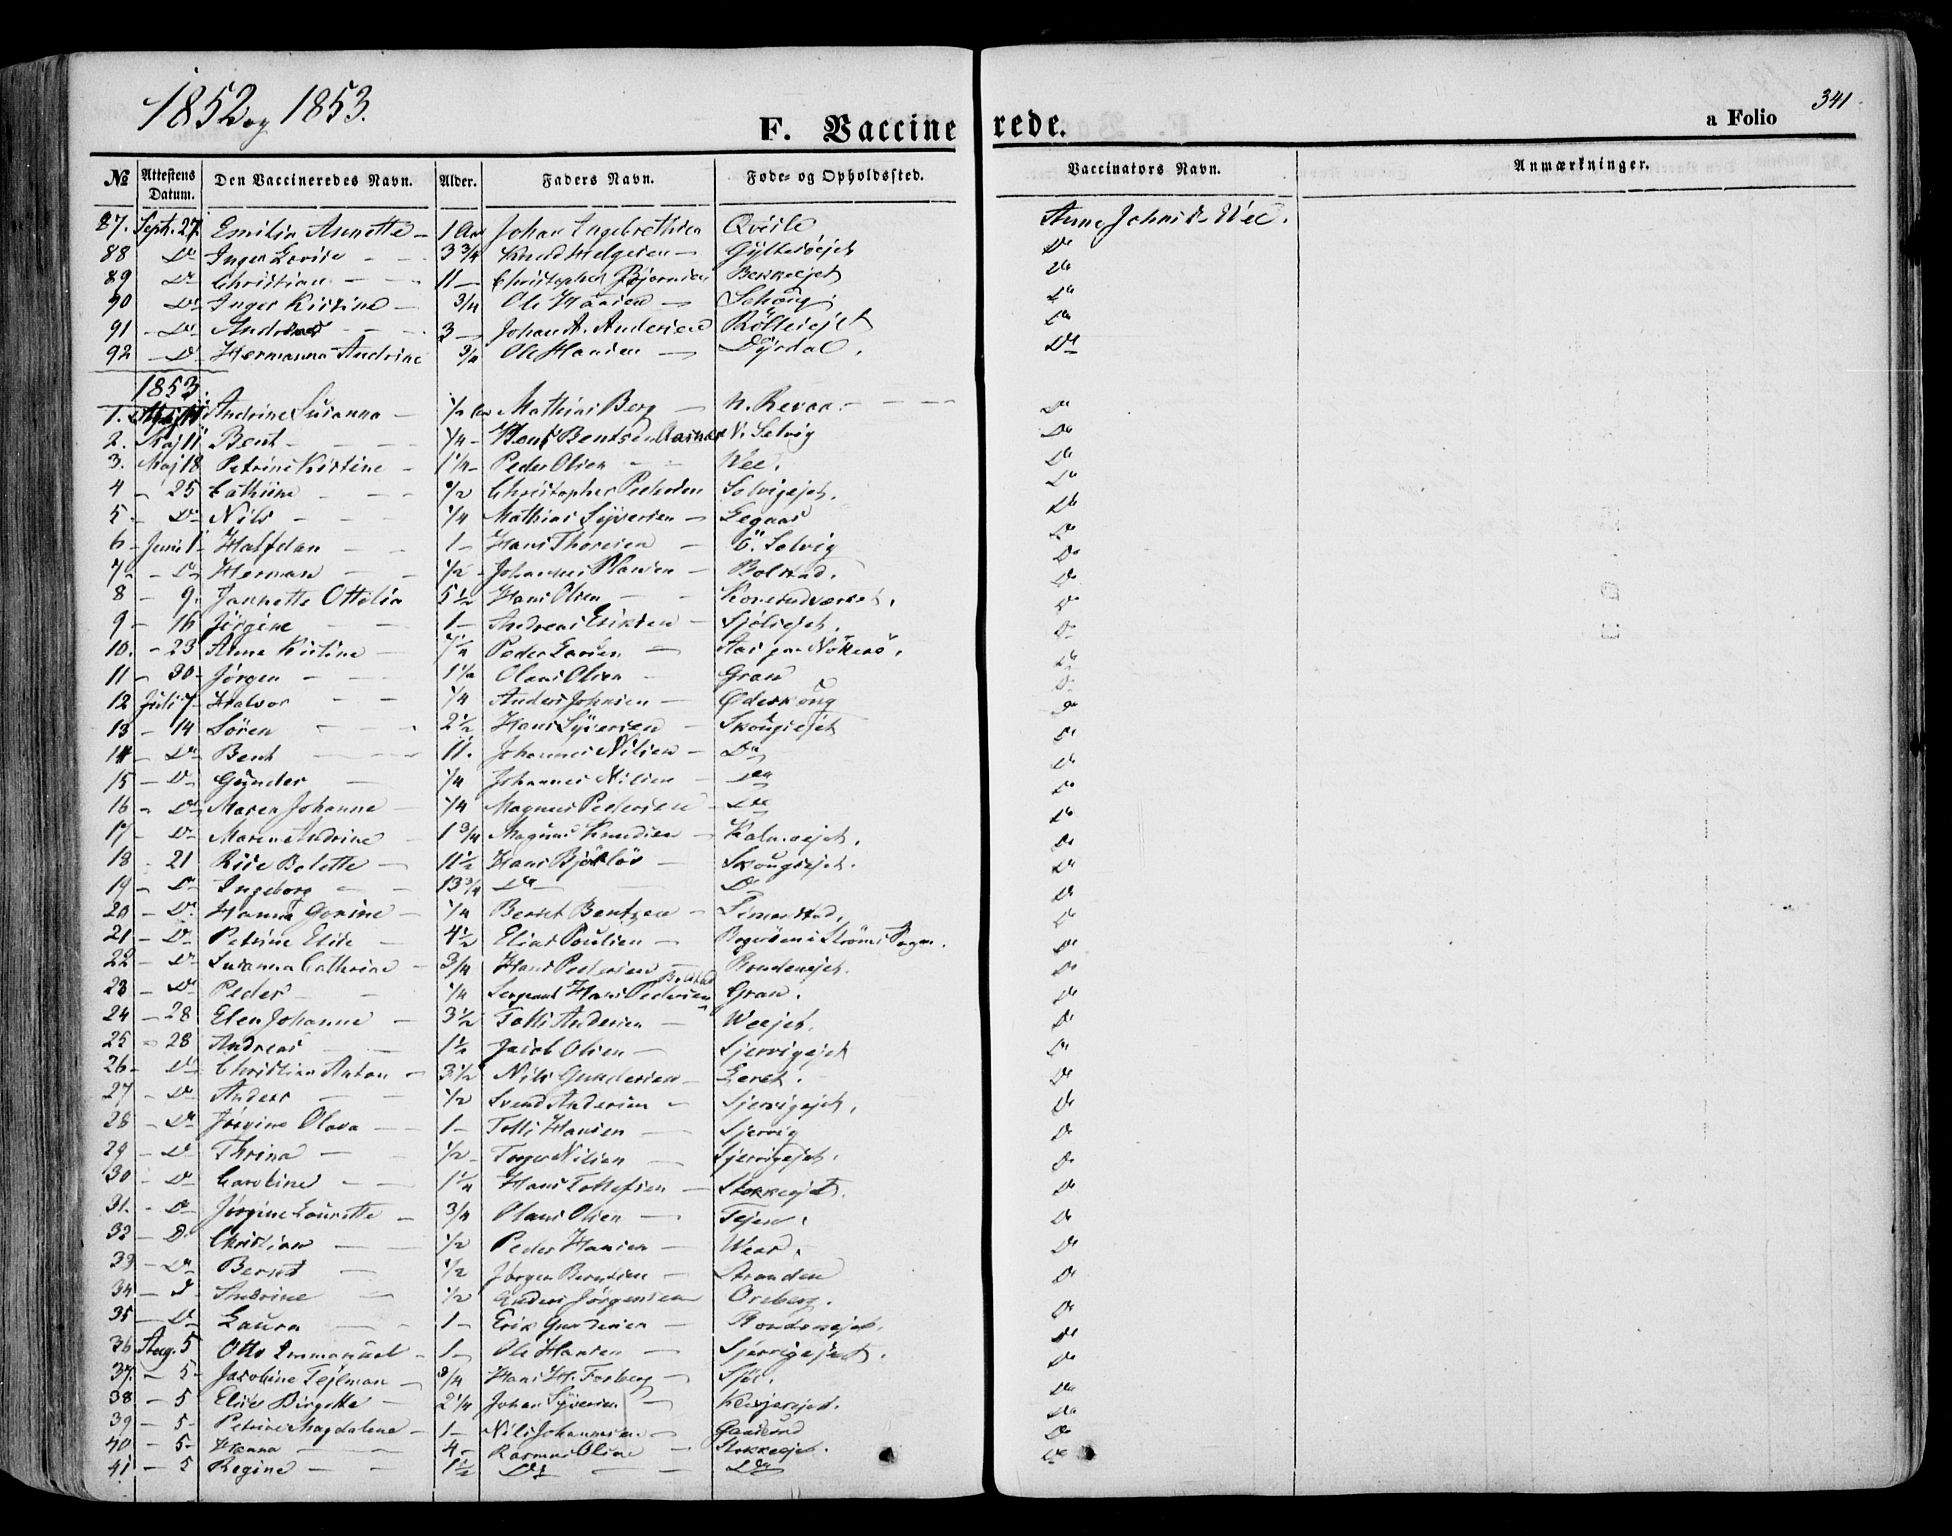 1852 og 1853.
F. Vaccinerede.
a Folio 341.
№ Attestens Datum. Den Vaccineredes Navn. Alder. Faders Navn. Føde- og Opholdssted. Vaccinators Navn. Anmærkninger.
87. Sept. 27 Emilia Annette 1 Aar Johan Ingebrethsen Qveile Anne Johnsd. Wee.
88 Do Inger Lovise 3 3/4 Knud Helgesen Do
89 Do Christian 11 Christopher Bjørnsen Bekkeejet Do
90 Do Inger Kirstine 3/4 Ole Hansen Do
91 Do Andreas 3 Johan A. Andersen Do
92 Do Hermanna Andrine 3/4 Ole Hansen Dyrdal. Do
1853
1. Andrine Susanna 1/2 Aar Mathias Berg N. Revaa. Do
2. Maj 11 Bent 1/4 Bentsen N. Selvig Do
3. Maj 18 Petrine Kirstine 1 1/4 Peder Olsen Wee. Do
4 25 Cathrine 1/2 Christopher Pedersen Solvigejet. Do
5 Do Nils 1/4 Mathias Syversen Do
6 Juni 1 Halfdan 1 Hans Thoresen Ö. Solvig Do
7 Do Herman 1/2 Johannes Hansen Bolstad. Do
8 9 Jannette Ottilia 5 1/2 Hans Olsen Konerudværket. Do
9 16 Jörgine 1 Andreas Eriksen Do
10. 23 Anne Kirstine Peder Larsen Aas paa Do
11 30 Jörgen 1 1/2 Olaus Olsen Gran Do
12 Juli 7 Halvor 1/4 Anders Johnsen Do
13 14 Sören 2 1/2 Hans Syversen Skougsejet Do
14 Do Bent 11. Johannes Nilsen Do Do
15 Do Gunder 1/4 Johannes Nilsen Do Do
16 Do Maren Johanne 1/4 Magnus Pedersen Do Do
17 Do Maren Andrine 1 3/4 Magnus Knudsen Do
18 21 Rise Bolette 11 1/2 Hans Skougsejet. Do
19 Do Ingeborg 13 3/4 Do Do Do
20 Do Hanna Gorine 1/4 Berset Bentzen Do
21 Do Petrine Elise 4 1/2 Elias Poulsen i Ströms Sogn. Do
22 Do Susanna Cathrine 3/4 Hans Pedersen Do
23 Do Peder 1/4 Sergeant Hans Pedersen Bolstad Gran. Do
24 28 Elen Johanne 3 1/2 Tolli Andersen Weejet. Do
25 28 Andreas 1 1/2 Jacob Olsen Sjervigejet Do
26 Do Christian Anton 3 1/2 Nils Gundersen Leret. Do
27 Do Anders 1/2 Svend Andersen Sjervigejet. Do
28 Do Jörgine Olava 1 Tolli Hansen Sjervig Do
29 Do Thrina 1/2 Torger Nilsen Sjervigejet. Do
30 Do Caroline 1 1/4 Hans Tollefsen Stokkeejet. Do
31. Do Jörgine Laurette 3/4 Olaus Olsen Do
32 Do Christian 1/2 Peder Hansen Do
33 Do Berset 1/2 Jörgen Berntsen Stranden Do
34 Andrine 1/2 Anders Jörgensen Oreberg. Do
35 Do Laura 1 Erik Gundersen Do
36 Aug. 5 Otto Emmanuel 1 Ole Hansen Sjervigejet. Do
37. 5 Jacobine Tejlman 3/4 Hans H. Forberg Do
38 5 Elise Birgitte 2 1/4 Johan Syversen Do
39 5 Petrine Magdalene 1 Nils Johannesen Do
40 5 Hanna 4 Rasmus Olsen Stokkeejet. Do
41 5 Regine 1 1/2 Do Do Do